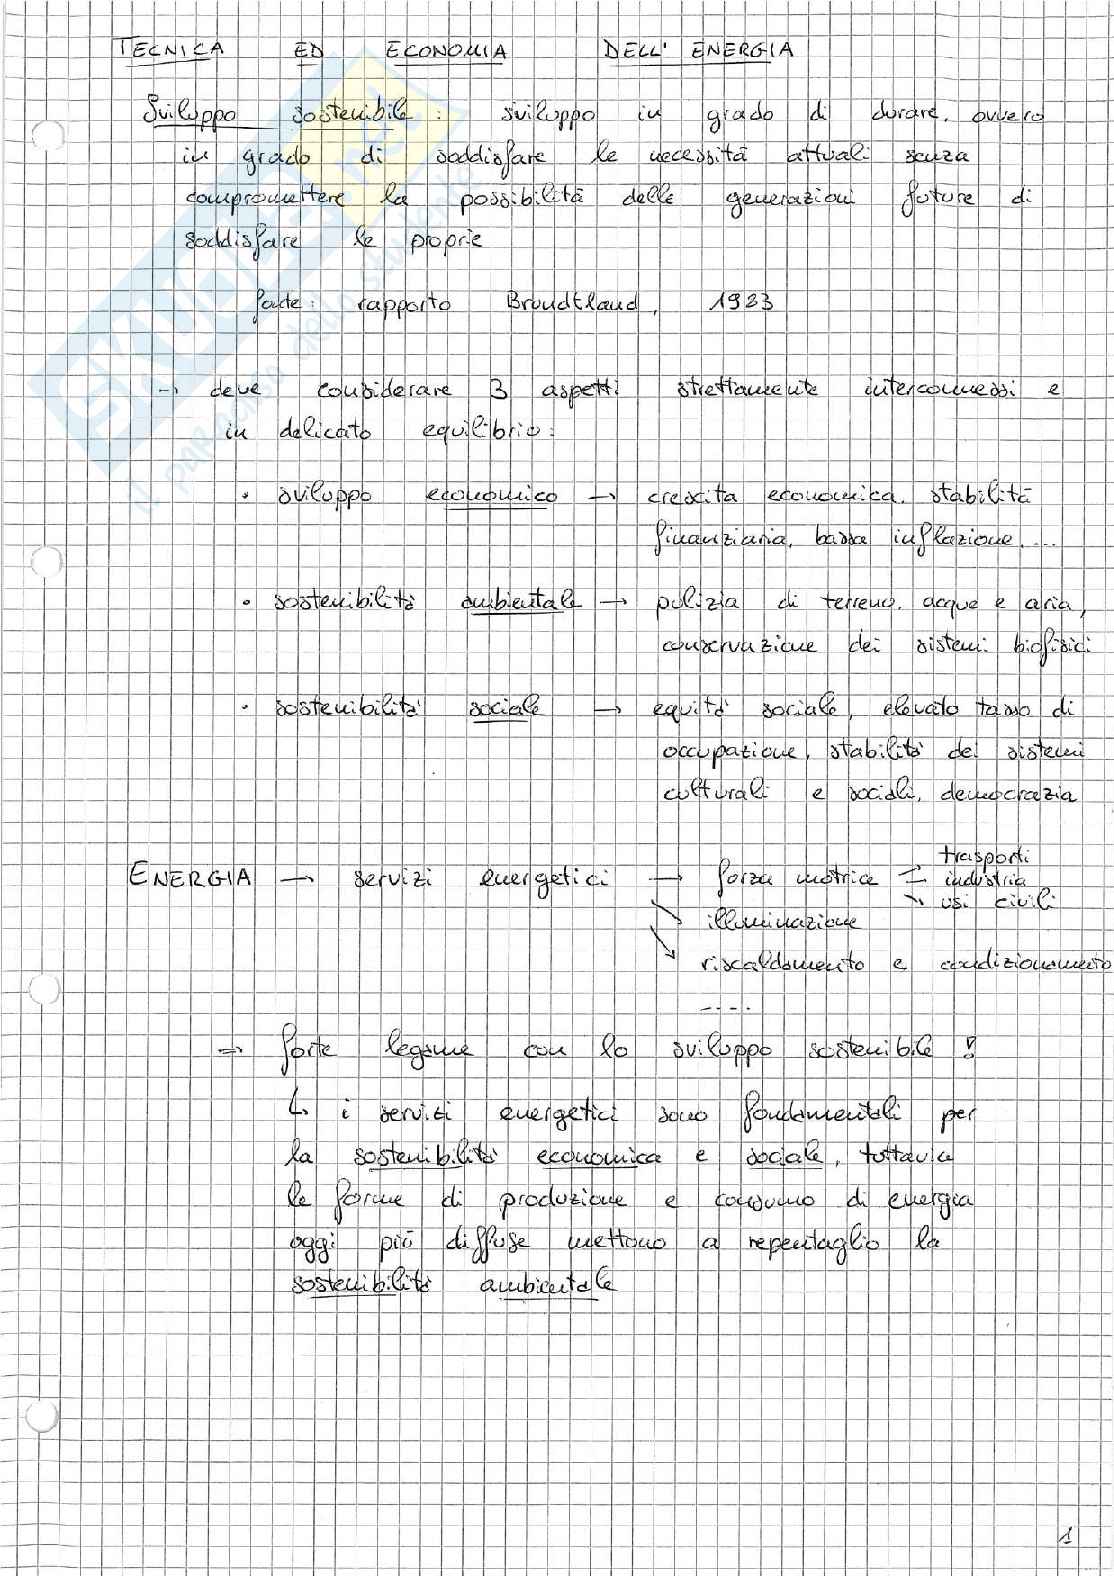 TECNICA ED ECONOMIA DELL' ENERGIA
Sviluppo sostenibile: sviluppo in grado di durare, ovvero
in grado di soddisfare le necessità attuali senza
compromettere la possibilità delle generazioni future di
soddisfare le proprie
fonte: rapporto Brundtland, 1983
→ deve considerare 3 aspetti strettamente interconnessi e
in delicato equilibrio:
• sviluppo economico → crescita economica, stabilità
finanziaria, bassa inflazione, ...
• sostenibilità ambientale → pulizia di terreno, acque e aria,
conservazione dei sistemi biofisici
• sostenibilità sociale → equità sociale, elevato tasso di
occupazione, stabilità dei sistemi
culturali e sociali, democrazia
trasporti
ENERGIA → servizi energetici → forza motrice → industria
↘ usi civili
↘ illuminazione
↘ riscaldamento e condizionamento
.....
⇒ forte legame con lo sviluppo sostenibile!
↳ i servizi energetici sono fondamentali per
la sostenibilità economica e sociale, tuttavia
le forme di produzione e consumo di energia
oggi più diffuse mettono a repentaglio la
sostenibilità ambientale
1
SKUOLA.net
il paradiso dello studente